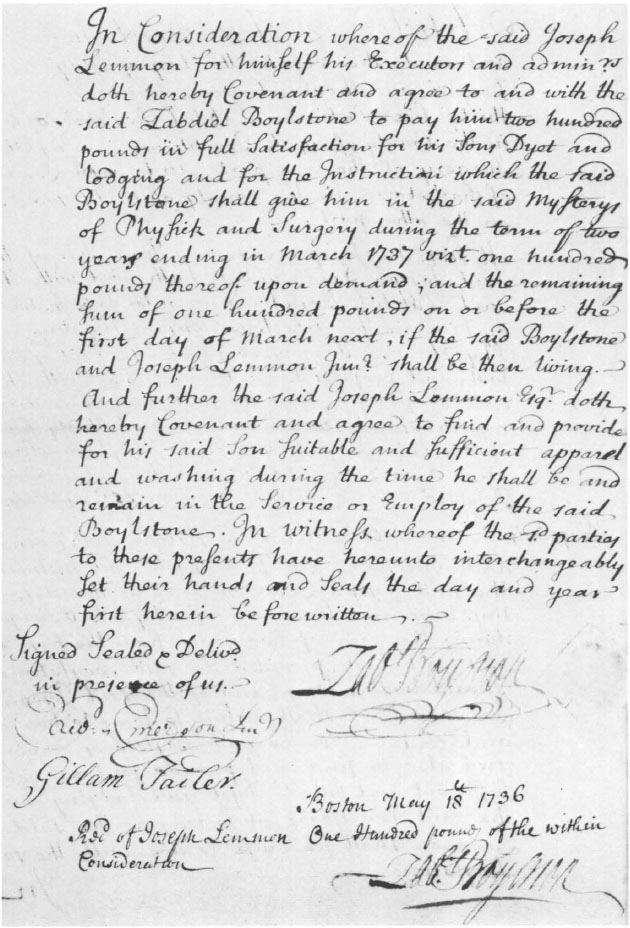 In Consideration whereof the said Joseph
Lemmon for himself his Executors and admin.rs
doth hereby Covenant and agree to and with the
said Zabdiel Boylstone to pay him two hundred
pounds in full Satisfaction for his Sons Dyet and
lodging and for the Instruction which the said
Boylstone shall give him in the said Mysterys
of Physick and Surgery during the term of two
years ending in March 1737 vizt. one hundred
pounds thereof upon demand, and the remaining
sum of one hundred pounds on or before the
first day of March next, if the said Boylstone
and Joseph Lemmon Jun.r shall be then living. —
And further the said Joseph Lemmon Esq.r doth
hereby Covenant and agree to find and provide
for his said Son Suitable and Sufficient apparel
and washing during the time he shall be and
remain in the Service or Employ of the said
Boylstone. In witness whereof the sd parties
to these presents have hereunto interchangeably
Set their hands and Seals the day and year
first herein before written.
Signed Sealed & Deliv.d
in presence of us. Zab.l Boylston
Emerson Jun.r
Gillam Tailer.
Boston May 18th 1736
Rec.d of Joseph Lemmon One Hundred pounds of the within
Consideration
Zab.l Boylston